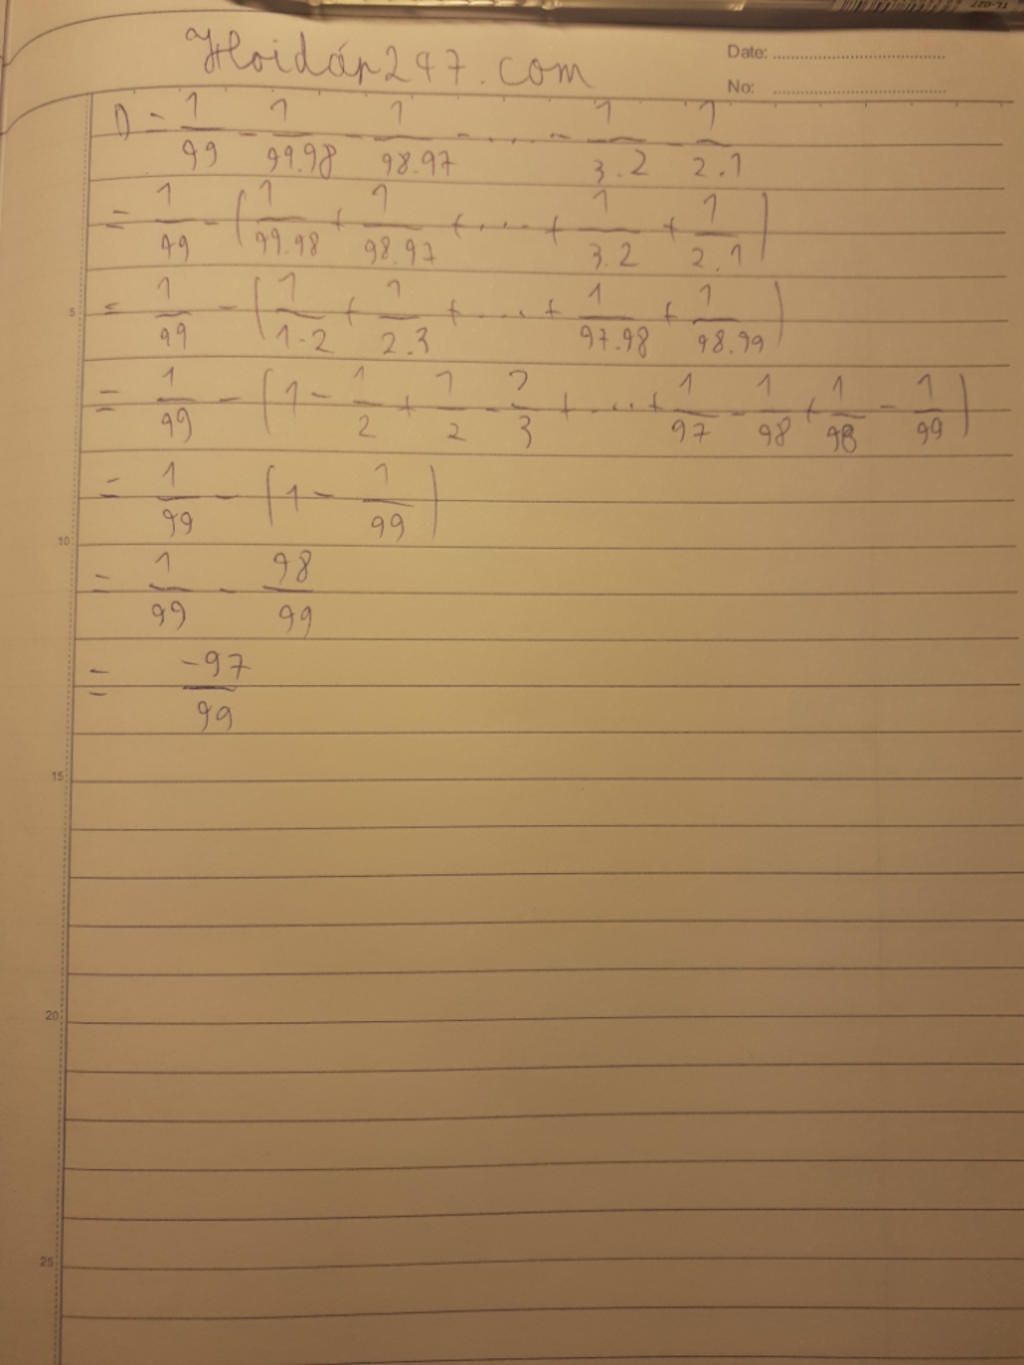 Hoidáp247.com
Date:
No:
D = 1/99 - 1/99.98 - 1/98.97 - .... - 1/3.2 - 1/2.1
= 1/99 - (1/99.98 + 1/98.97 + .... + 1/3.2 + 1/2.1)
5
= 1/99 - (1/1.2 + 1/2.3 + .... + 1/97.98 + 1/98.99)
= 1/99 - (1 - 1/2 + 1/2 - 1/3 + ... + 1/97 - 1/98 + 1/98 - 1/99)
= 1/99 - (1 - 1/99)
10
= 1/99 - 98/99
= -97/99
15
20
25